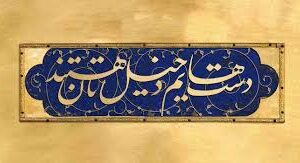 دست هایم دخیل تان هستند